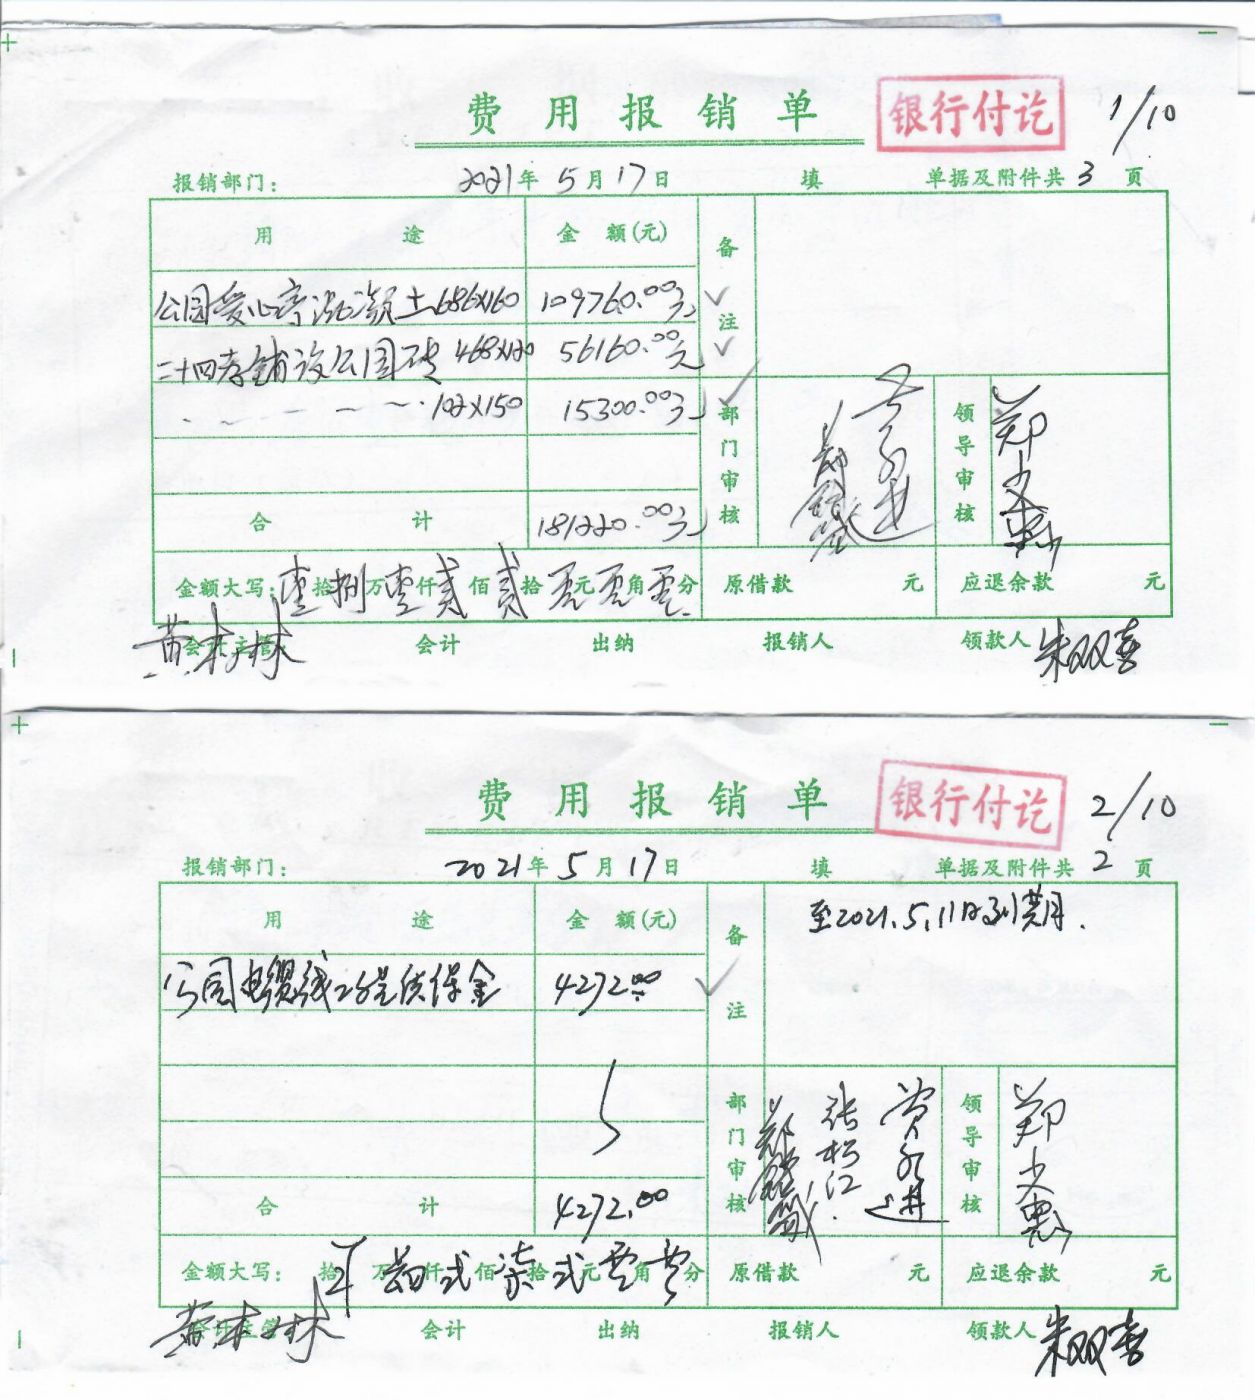 费用报销单
银行付讫
1/10
报销部门： 2021年5月17日 填 单据及附件共3页
用途 金额(元) 备注
公园爱心亭混凝土686×160 109760.00元
二十四孝铺设公园砖 468×120 56160.00元
102×150 15300.00元
部门审核 领导审核
合计 181220.00元
金额大写：壹拾捌万壹仟贰佰贰拾零元零角零分 原借款 元 应退余款 元
会计主管 黄林林 会计 出纳 报销人 领款人 朱双喜
费用报销单
银行付讫
2/10
报销部门： 2021年5月17日 填 单据及附件共2页
用途 金额(元) 备注
至2021.5.11日到期.
公园电缆线工程质保金 4272.00
部门审核 张松江 领导审核
合计 4272.00
金额大写： 拾万肆仟贰佰柒拾贰元零角零分 原借款 元 应退余款 元
会计主管 黄林林 会计 出纳 报销人 领款人 朱双喜